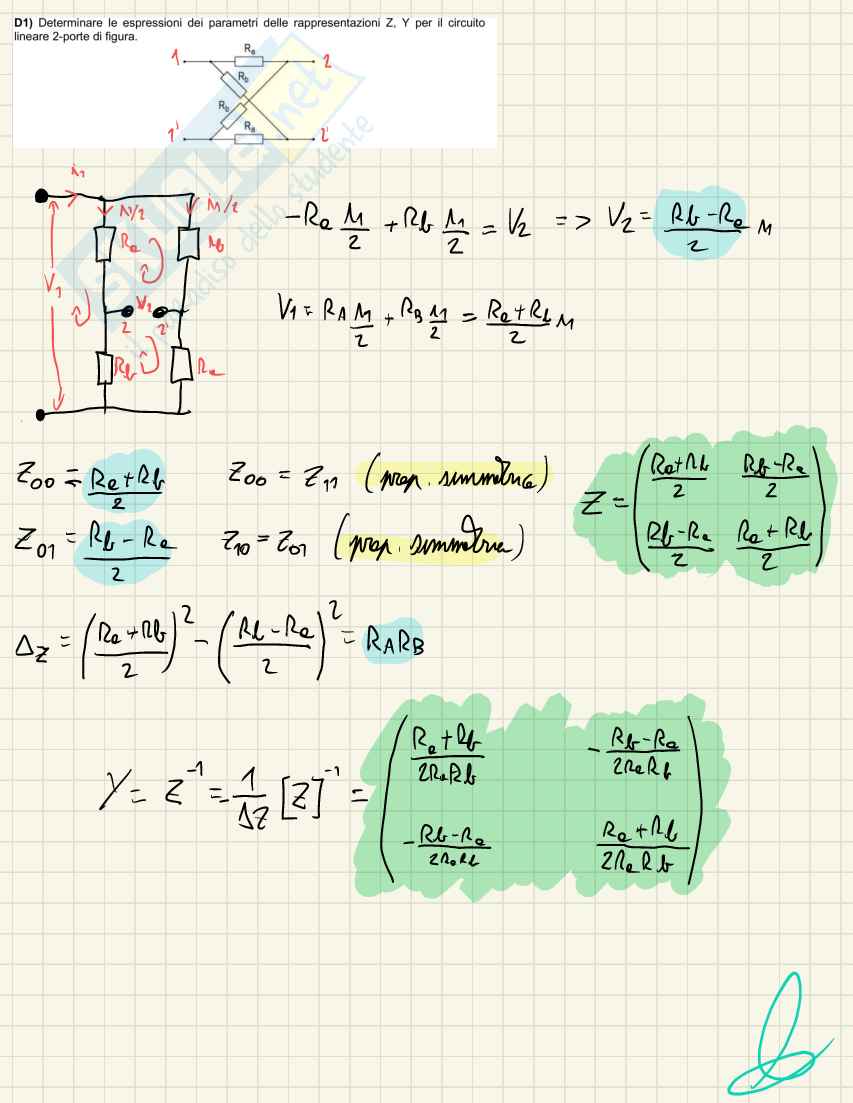 D1) Determinare le espressioni dei parametri delle rappresentazioni Z, Y per il circuito
lineare 2-porte di figura.
1 Ra 2
Rb
Rb
1' Ra 2'
i1
i1/2 i1/2
Ra Rb
V1
V2
2 2'
Rb Ra
-Ra i1/2 + Rb i1/2 = V2 => V2 = (Rb - Ra)/2 i1
V1 = RA i1/2 + RB i1/2 = (Ra + Rb)/2 i1
Z00 = (Ra + Rb)/2 Z00 = Z11 (prop. simmetria)
Z01 = (Rb - Ra)/2 Z10 = Z01 (prop. simmetria)
Z = ( (Ra + Rb)/2 (Rb - Ra)/2
(Rb - Ra)/2 (Ra + Rb)/2 )
ΔZ = ((Ra + Rb)/2)² - ((Rb - Ra)/2)² = RARB
Y = Z⁻¹ = 1/ΔZ [Z]⁻¹ = ( (Ra + Rb)/2RaRb -(Rb - Ra)/2RaRb
-(Rb - Ra)/2RaRb (Ra + Rb)/2RaRb )